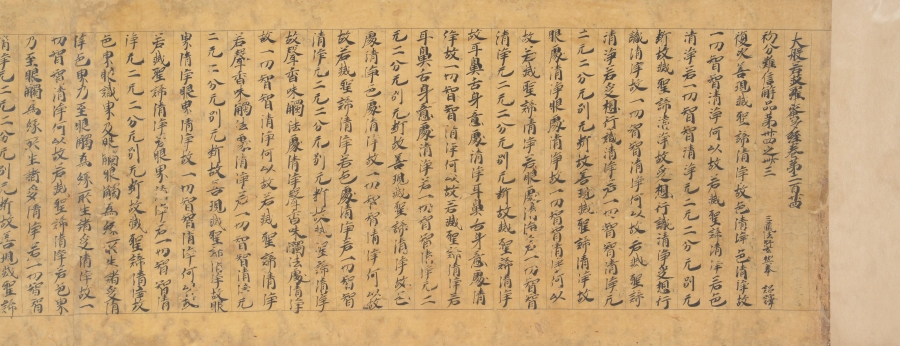 大般若波羅蜜多經卷第二百四
初分難信解品第卅四之廿三 三藏法師玄奘奉 詔譯
復次善現滅聖諦清淨故色清淨色清淨故
一切智智清淨何以故若滅聖諦清淨若色
清淨若一切智智清淨无二无二分无別无
斷故滅聖諦清淨故受想行識清淨受想行
識清淨故一切智智清淨何以故若滅聖諦
清淨若受想行識清淨若一切智智清淨无
二无二分无別无斷故善現滅聖諦清淨故
眼處清淨眼處清淨故一切智智清淨何以
故若滅聖諦清淨若眼處清淨若一切智智
清淨无二无二分无別无斷故滅聖諦清淨
故耳鼻舌身意處清淨耳鼻舌身意處清
淨故一切智智清淨何以故若滅聖諦清淨若
耳鼻舌身意處清淨若一切智智清淨无二
无二分无別无斷故善現滅聖諦清淨故色
處清淨色處清淨故一切智智清淨何以故
故若滅聖諦清淨若色處清淨若一切智智
清淨无二无二分无別无斷故滅聖諦清淨
故聲香味觸法處清淨聲香味觸法處清淨
故一切智智清淨何以故若滅聖諦清淨
若聲香味觸法處清淨若一切智智清淨无
二无二分无別无斷故善現滅聖諦清淨故眼
界清淨眼界清淨故一切智智清淨何以故
若滅聖諦清淨若眼界清淨若一切智智清
淨无二无二分无別无斷故滅聖諦清淨故
色界眼識界及眼觸眼觸為緣所生諸受清
淨色界乃至眼觸為緣所生諸受清淨故一
切智智清淨何以故若滅聖諦清淨若色界
乃至眼觸為緣所生諸受清淨若一切智智
清淨无二无二分无別无斷故善現滅聖諦